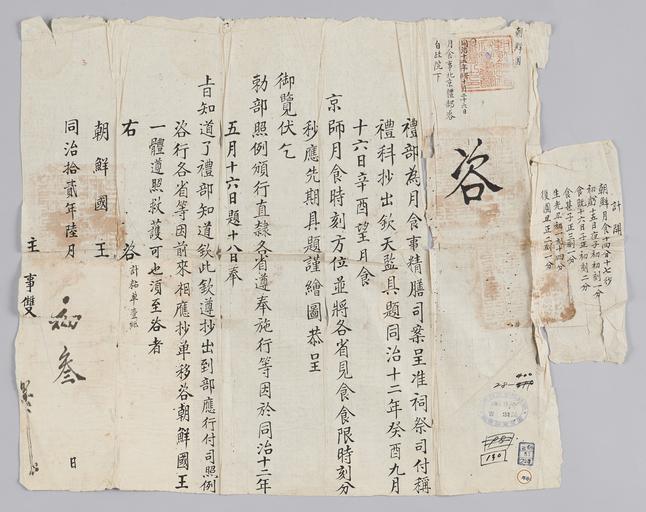 朝鮮國
同治十二年
月食事北京禮部咨
自政院下
咨
禮部為月食事精膳司案呈准祠祭司付稱
禮科抄出欽天監具題同治十二年癸酉九月
十六日辛酉望月食
京師月食時刻方位並將各省見食食限時刻分
秒應先期具題謹繪圖恭呈
御覽伏乞
勅部照例頒行直隸各省遵奉施行等因於同治十二年
五月十六日題十八日奉
旨知道了禮部知道欽此欽遵抄出到部應行付司照例
咨行各省等因前來相應抄單移咨朝鮮國王
一體遵照救護可也須至咨者
計粘單壹紙
右咨
朝鮮國王
同治拾貳年陸月初叁日
主事雙
計開
朝鮮月食十四分十七秒
初虧十五日夜子初初刻一分
食既十六日子正初刻二分
食甚子正三刻一分
生光丑初一刻十四分
復圓丑正二刻一分
28-
130